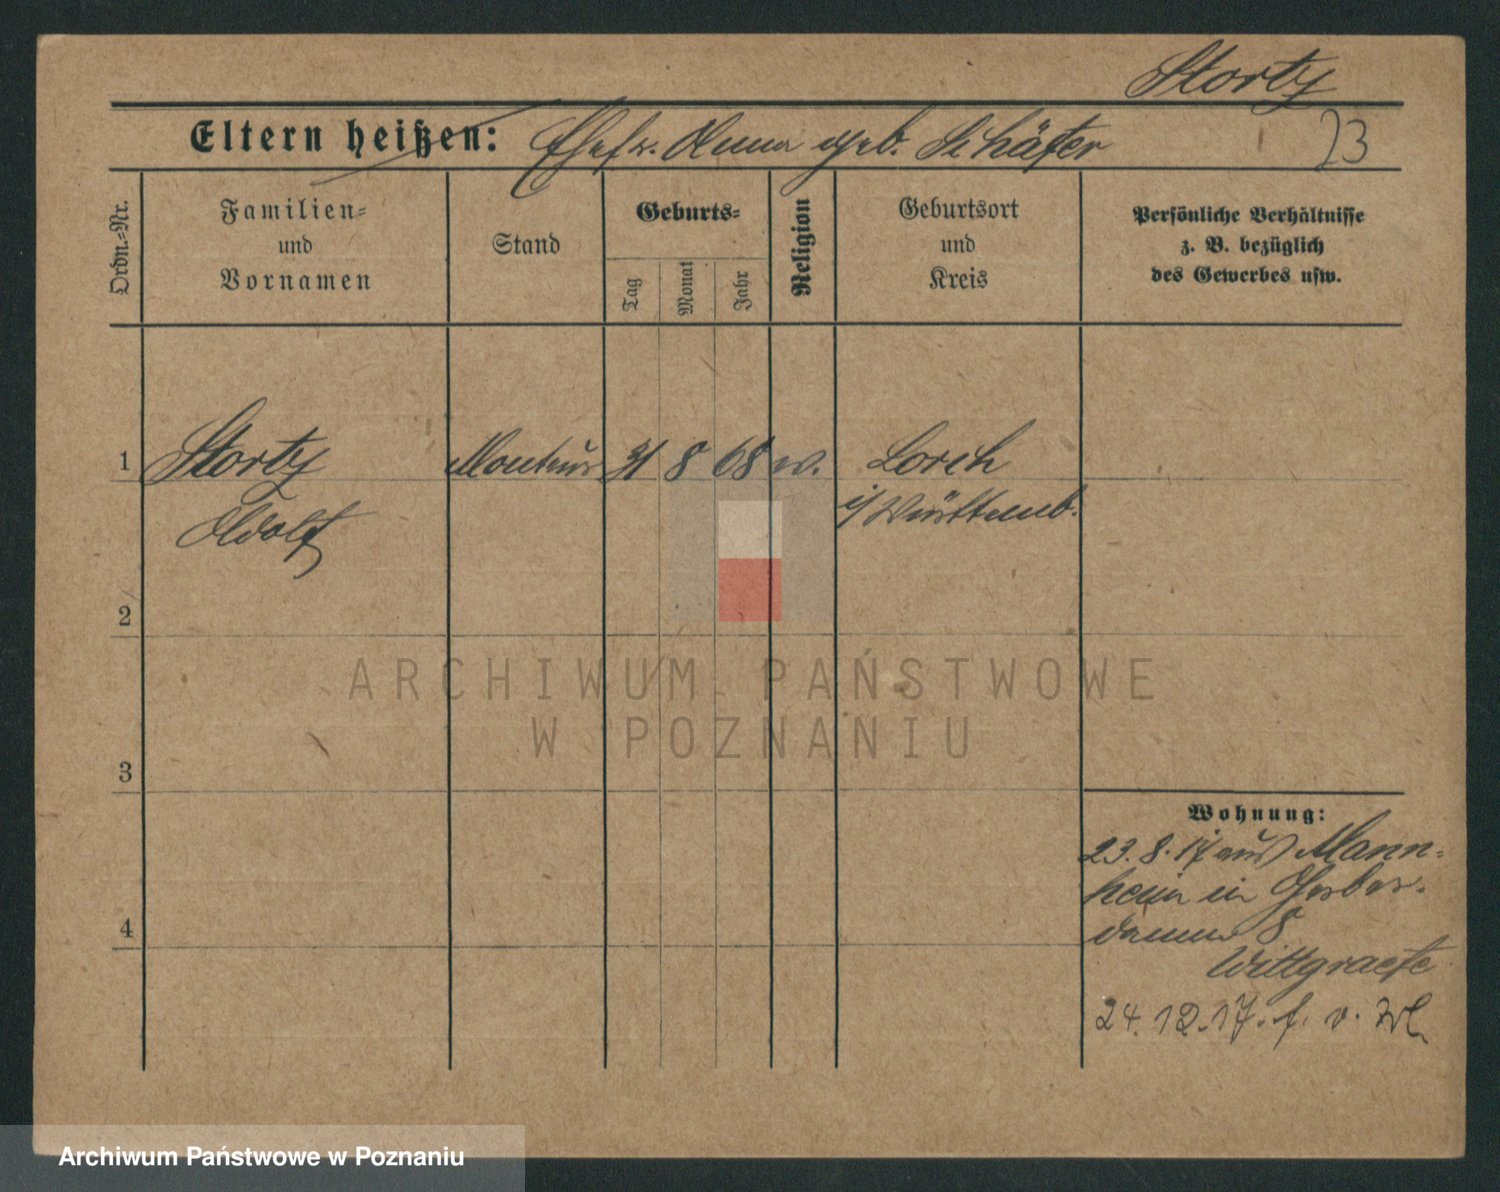 Storty
Eltern heißen: Ehefr. Anna geb. Schäfer
23
Ordn.=Nr.
Familien=
und
Vornamen
Stand
Geburts=
Tag
Monat
Jahr
Religion
Geburtsort
und
Kreis
Persönliche Verhältnisse
z. B. bezüglich
des Gewerbes usw.
1 Storty Monteur 31 8 68 Lorch
Adolf
i/Württemb.
2
ARCHIWUM PAŃSTWOWE
W POZNANIU
3
Wohnung:
23. 8. 17 aus Mann=
heim in Gerber=
damm 8
Wittgraefe
24. 12. 17. f. v.
4
Archiwum Państwowe w Poznaniu